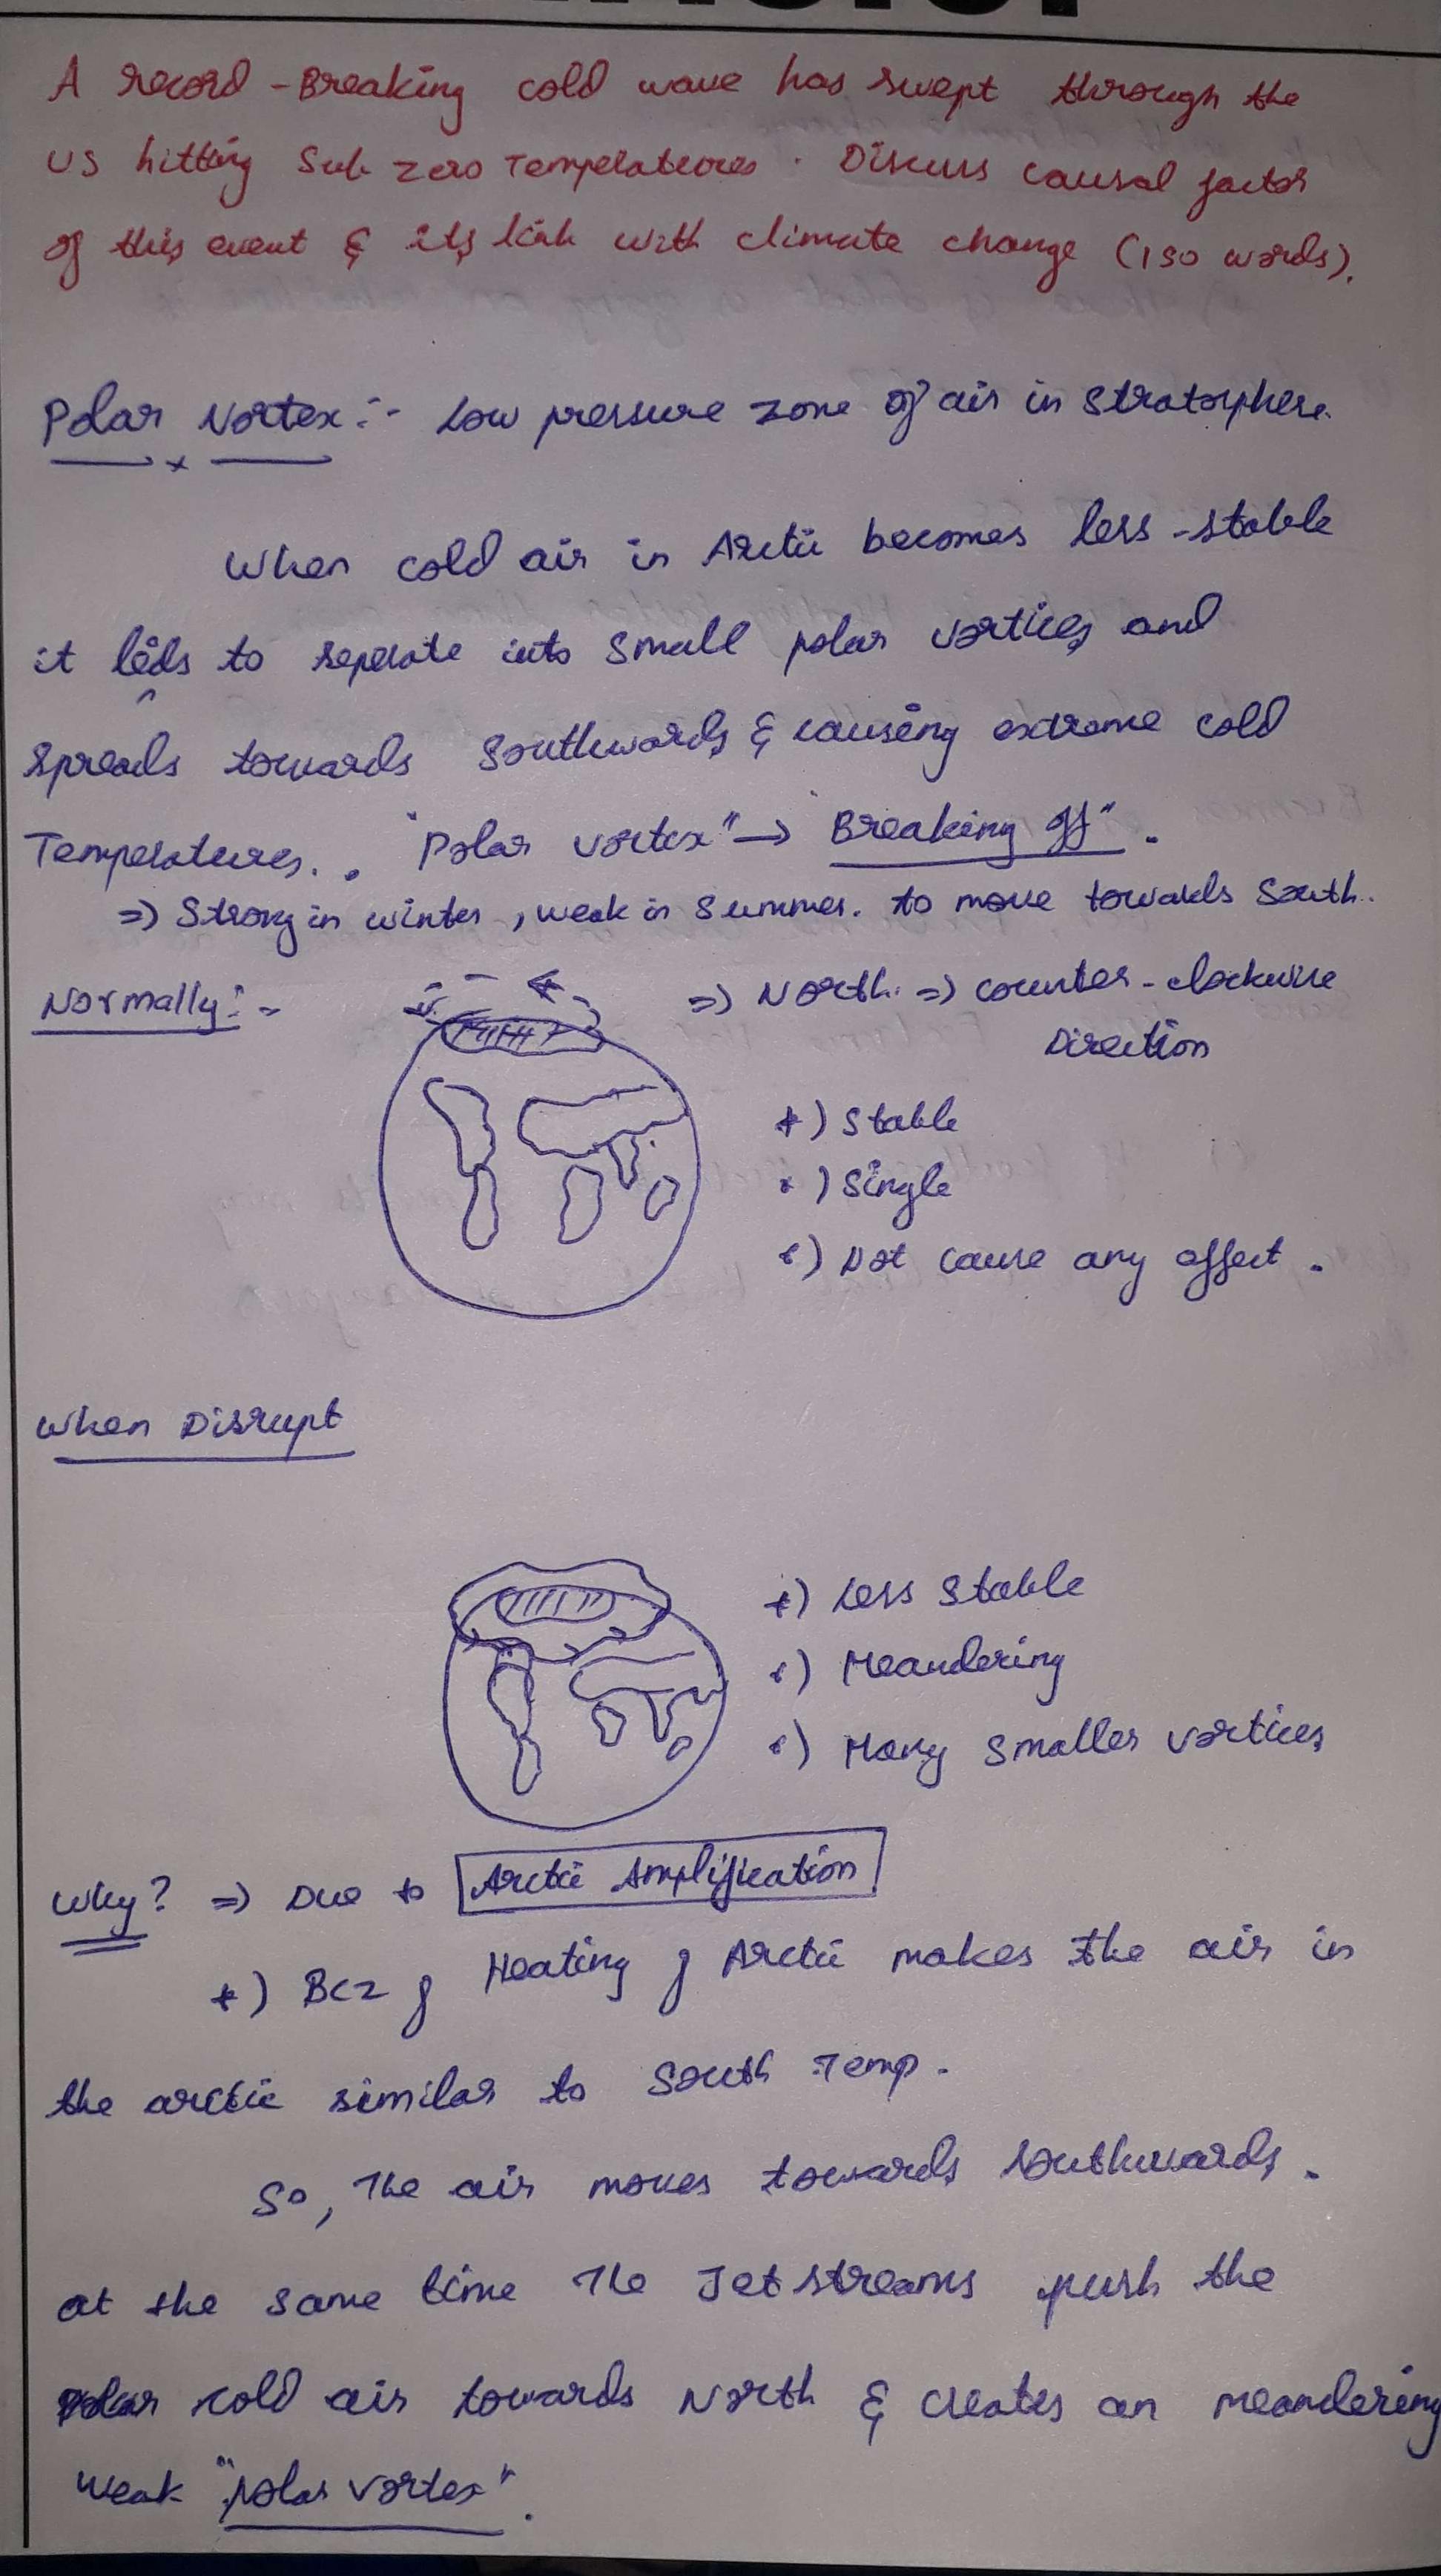 A record - Breaking cold wave has swept through the
US hitting Sub zero Temperatures . Discuss causal factor
of this event & its link with climate change (150 words).
Polar Vortex :- Low pressure zone of air in stratosphere.
When cold air in Arctic becomes less - stable
it leds to seperate into small polar vortices and
spreads towards Southwards & causing extreme cold
Temperatures. . "Polar vortex" → "Breaking off" .
⇒ Strong in winter , weak in summer. to move towards South.
Normally :- ⇒ North. ⇒ counter - clockwise
Direction
*) Stable
*) Single
*) Not cause any affect .
When Disrupt
*) Less Stable
*) Meandering
*) Many smaller vortices
Why? ⇒ Due to Arctic Amplification
*) Bcz of Heating of Arctic makes the air in
the arctic similar to South Temp .
So, The air moves towards Southwards .
at the same time The Jet streams push the
polar cold air towards North & creates an meandering
weak "polar vortex" .